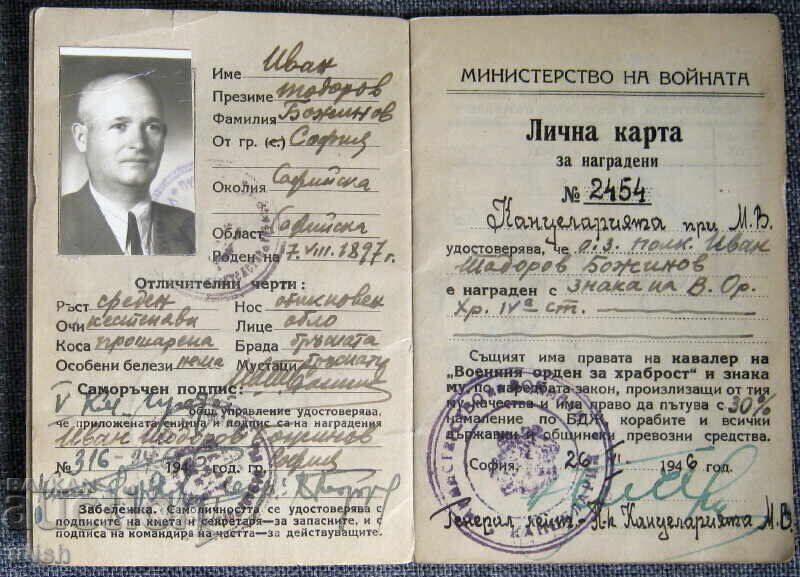 Име Иван
Презиме Тодоров
Фамилия Божинов
От гр. (с.) София
Околия Софийска
Област Софийска
Роден на 7.VIII.1897 г.
Отличителни черти:
Ръст среден Нос обикновен
Очи кестенави Лице обло
Коса прошарена Брада бръсната
Особени белези нема Мустаци бръснати
Саморъчен подпис:
V
общ. управление удостоверява,
че приложената снимка и подпис са на наградения
Иван Тодоров Божинов
№ 316 194 год. гр. София
Забележка. Самоличността се удостоверява с
подписите на кмета и секретаря—за запасните, и с
подписа на командира на частта—за действуващите.
МИНИСТЕРСТВО НА ВОЙНАТА
Лична карта
за наградени
№ 2454
Канцеларията при М.В.
удостоверява, че о.з. полк. Иван
Тодоров Божинов
е награден с знака на В. Ор.
Хр. IVа ст.
Същият има правата на кавалер на
„Военния орден за храброст" и знака
му, по наредбата закон, произлизащи от тия
му качества и има право да пътува с 30%
намаление по БДЖ, корабите и всички
държавни и общински превозни средства.
София, 26 1946 год.
Генерал лейт. - Н-к Канцеларията М.В.
КАНЦЕЛАРИЯ